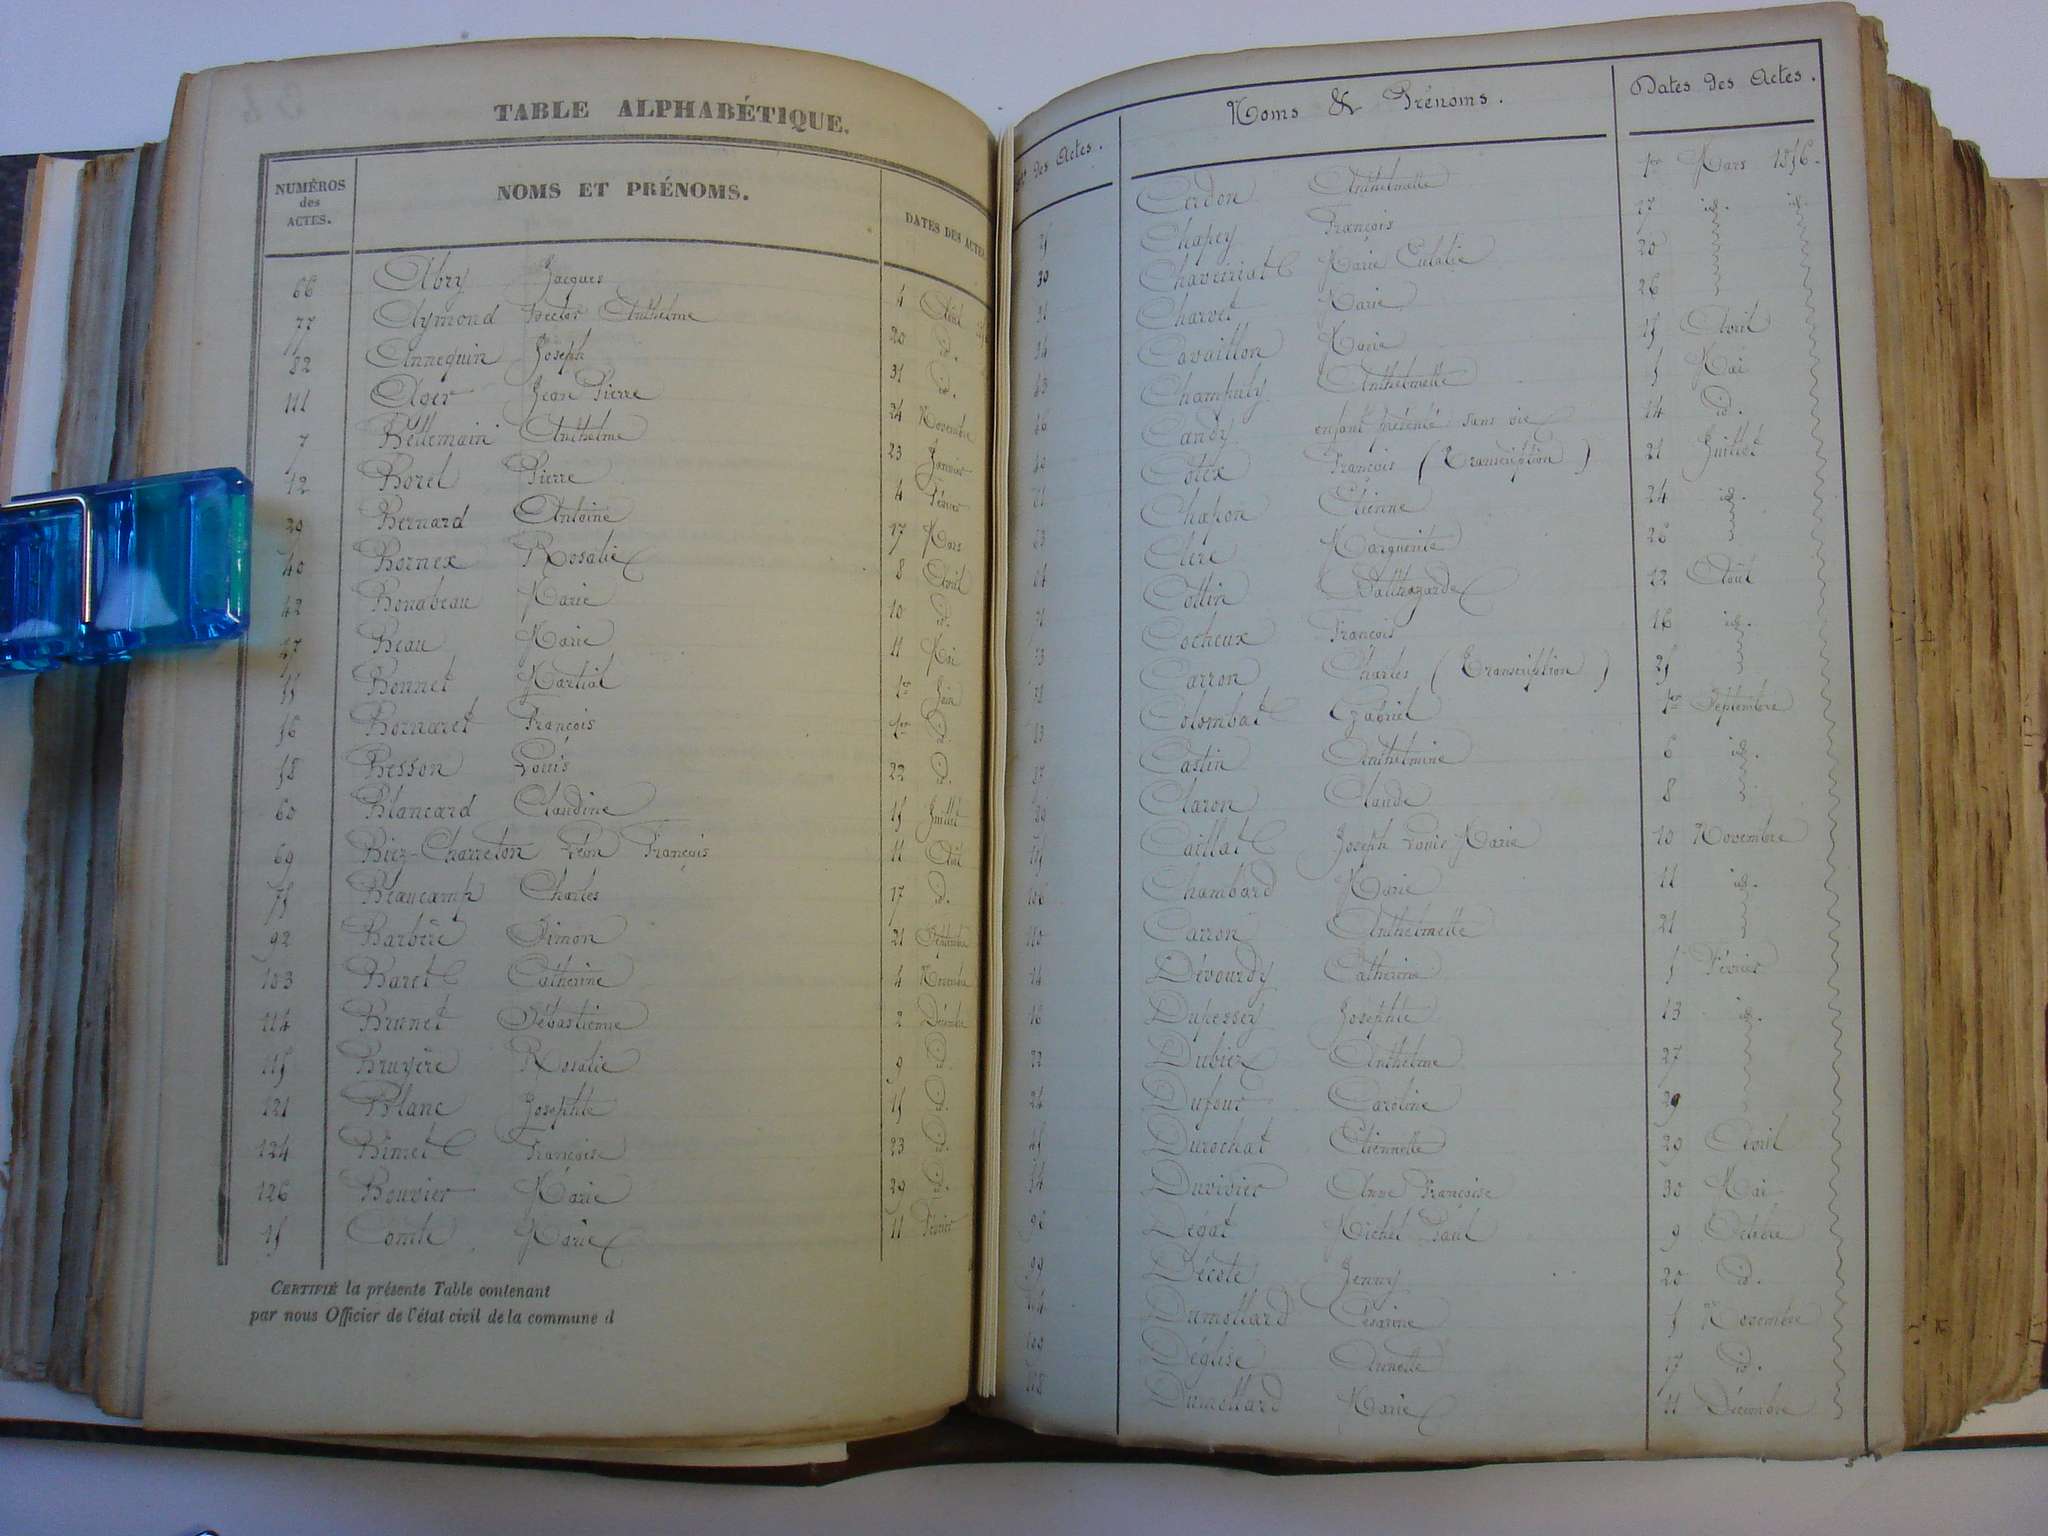 TABLE ALPHABÉTIQUE.
NUMÉROS des ACTES. NOMS ET PRÉNOMS. DATES DES ACTES
66 Abry Jacques 4 Août
77 Aymond Hector Anthelme 20 id.
82 Annequin Joseph 31 id.
111 Ager Jean Pierre 24 Novembre
7 Bellemain Anthelme 23 Janvier
12 Borel Pierre 4 Février
20 Bernard Antoine 17 Mars
40 Bornex Rosalie 8 Avril
42 Bonabeau Marie 10 id.
47 Beau Marie 11 Mai
55 Bonnet Martial 1er Juin
56 Bornaret François 1er id.
58 Besson Louis 22 id.
60 Blancard Claudine 15 Juillet
69 Biez-Charreton Léon François 11 Août
75 Beaucamp Charles 17 id.
92 Barbère Simon 21 Septembre
103 Baret Catherine 4 Novembre
114 Brunet Sébastienne 2 Décembre
115 Bruyère Rosalie 9 id.
121 Blanc Josephte 15 id.
124 Bimet François 23 id.
126 Bouvier Marie 29 id.
15 Comte Marie 11 Février
CERTIFIÉ la présente Table contenant
par nous Officier de l'état civil de la commune d
des Actes. Noms & Prénoms. Dates des Actes.
Cerdon Anthelmette 1er Mars 1856.
Chapey François 27 id. id.
Chaverriat Marie Eulalie 20
Charvet Marie 26
Cavaillon Marie 15 Avril
Champuly Anthelmette 5 Mai
Candy enfant présenté sans vie 14 id.
Cottex François (Transcription) 21 Juillet
Chapon Etienne 24 id.
Clerc Marguerite 26
Cottin Balthazarde 12 Août
Cocheux François 16 id.
Carron Charles (Transcription) 25
Colombat Gabriel 1er Septembre
Castin Anthelmine 6 id.
Claron Claude 8
Caillat Joseph Louis Marie 10 Novembre
106 Chambard Marie 11 id.
110 Carron Anthelmette 21
14 Dévourdy Catherine 5 Février
18 Dupessey Josephte 13 id.
22 Dubiez Anthelme 27
24 Dufour Caroline 29
45 Durochat Etiennette 20 Avril
54 Duvivier Anne Françoise 30 Mai
96 Dégat Michel Paul 9 Octobre
99 Décote Jenny 20 id.
104 Dumollard Césarine 5 Novembre
109 Déglise Annette 17 id.
118 Dumollard Marie 11 Décembre